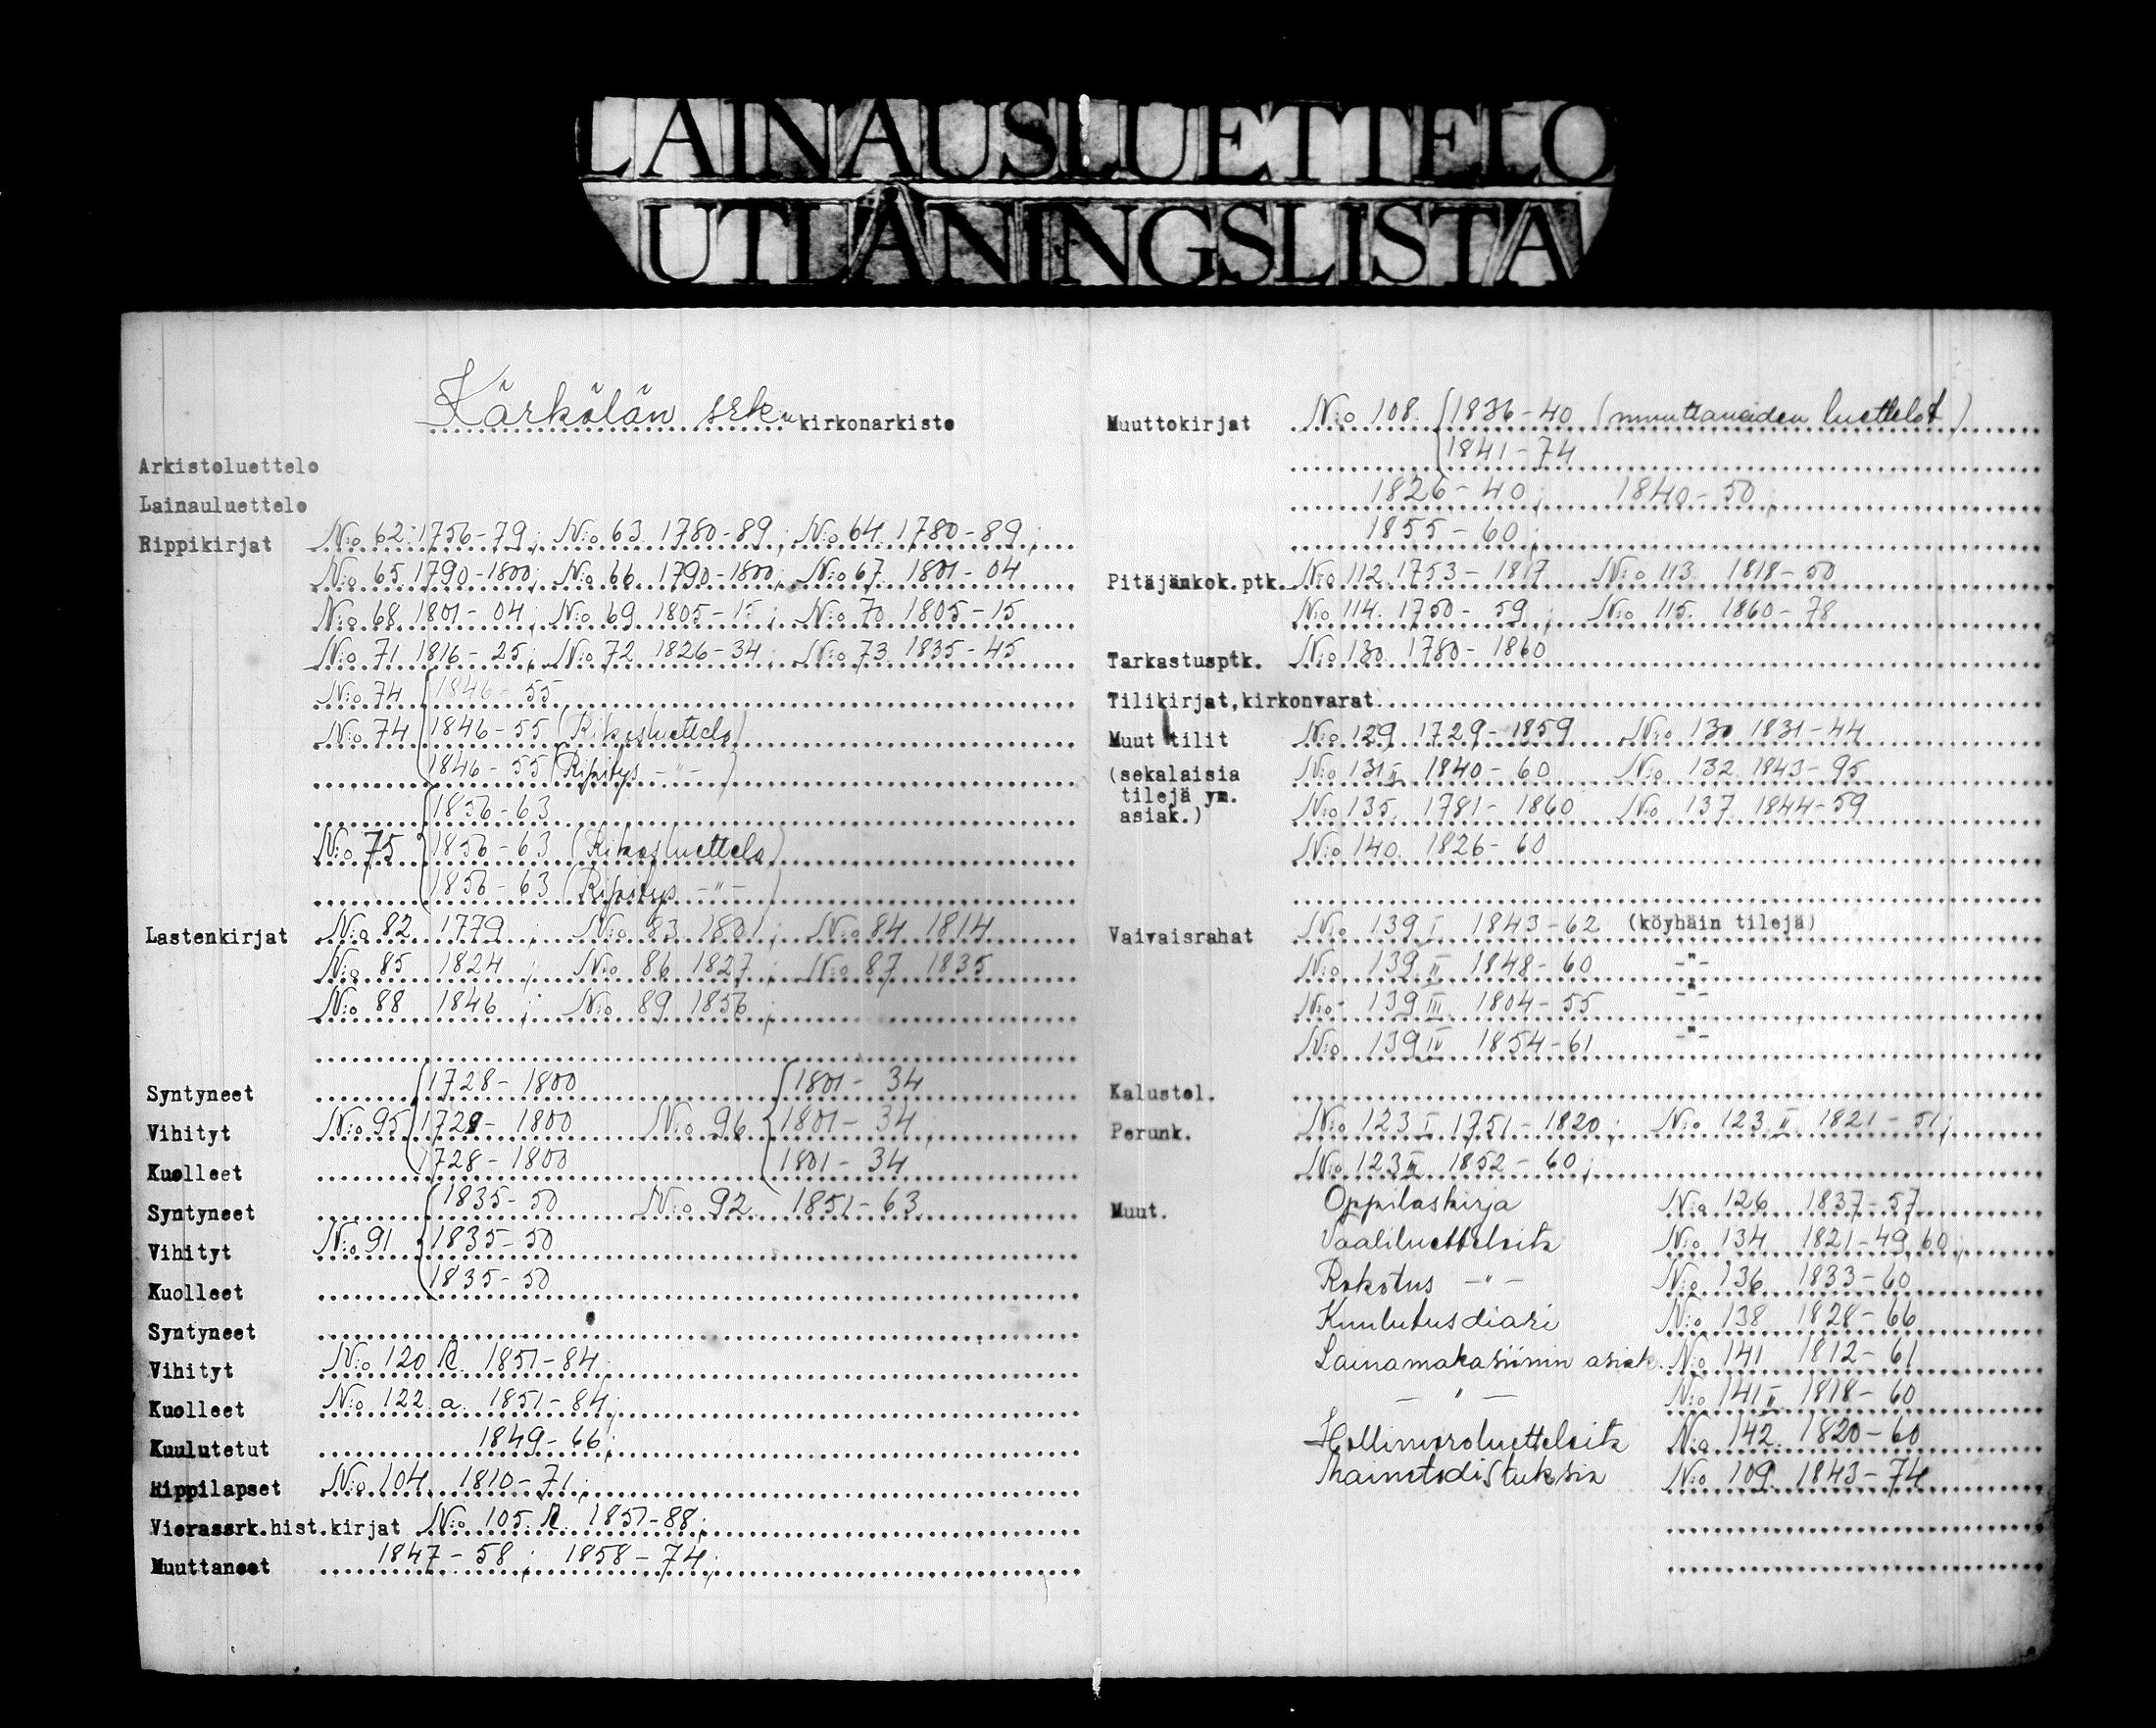 LAINAUSLUETTELO
UTLÅNINGSLISTA
Kärkölän srk:n kirkonarkisto
Arkistoluettelo
Lainauluettelo
Rippikirjat N:o 62 1756-79; N:o 63 1780-89; N:o 64 1780-89;
N:o 65 1790-1800; N:o 66 1790-1800; N:o 67 1801-04
N:o 68 1801-04; N:o 69 1805-15; N:o 70 1805-15
N:o 71 1816-25; N:o 72 1826-34; N:o 73 1835-45
N:o 74 1846-55
N:o 74 1846-55 (Rikosluettelo)
1846-55 (Ripitys -"-)
1856-63
N:o 75 1856-63 (Rikosluettelo)
1856-63 (Ripitys -"-)
Lastenkirjat N:o 82 1779; N:o 83 1801; N:o 84 1814
N:o 85 1824; N:o 86 1827; N:o 87 1835
N:o 88 1846; N:o 89 1856;
Syntyneet 1728-1800 1801-34
Vihityt N:o 95 1729-1800 N:o 96 1801-34;
Kuolleet 1728-1800 1801-34
Syntyneet 1835-50 N:o 92 1851-63
Vihityt N:o 91 1835-50
Kuolleet 1835-50
Syntyneet
Vihityt N:o 120 R. 1851-84;
Kuolleet N:o 122 a. 1851-84;
Kuulutetut 1849-66;
Rippilapset N:o 104 1810-71;
Vierassrk.hist.kirjat N:o 105 R. 1851-88;
Muuttaneet 1847-58; 1858-74;
Muuttokirjat N:o 108 1836-40 (muuttaneiden luettelot)
1841-74
1826-40; 1840-50;
1855-60;
Pitäjänkok.ptk. N:o 112 1753-1817 N:o 113 1818-50
N:o 114 1750-59; N:o 115 1860-78
Tarkastusptk. N:o 130 1780-1860
Tilikirjat,kirkonvarat
Muut tilit N:o 129 1729-1859 N:o 130 1831-44
(sekalaisia N:o 131 II 1840-60 N:o 132 1843-95
tilejä ym.
asiak.) N:o 135 1781-1860 N:o 137 1844-59
N:o 140 1826-60
Vaivaisrahat N:o 139 I 1843-62 (köyhäin tilejä)
N:o 139 II 1848-60 -"-
N:o 139 III 1804-55 -"-
N:o 139 IV 1854-61 -"-
Kalustol.
Perunk. N:o 123 I 1751-1820; N:o 123 II 1821-51;
N:o 123 III 1852-60;
Muut. Oppilaskirja N:o 126 1837-57
Vaaliluetteloita N:o 134 1821-49,60;
Rokotus -"- N:o 136 1833-60
Kuulutusdiari N:o 138 1828-66
Lainamakasiinin asiak. N:o 141 1812-61
-"- N:o 141 II 1818-60
N:o 142 1820-60
Mainetodistuksia N:o 109 1843-74